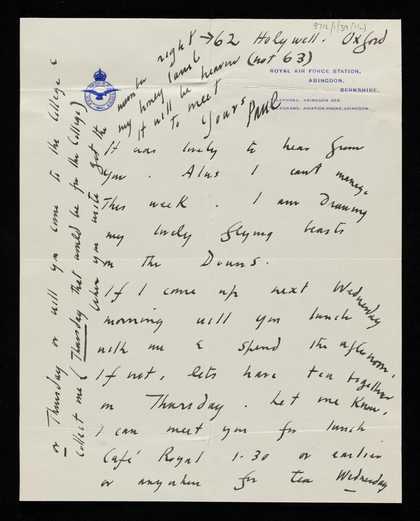 62 Holywell. Oxford
(not 63)
ROYAL AIR FORCE STATION,
ABINGDON,
BERKSHIRE.
It was lovely to hear from
you. Alas I can't manage
This week. I am Drawing
my lovely flying beasts
on the Downs.
If I come up next Wednesday
morning will you lunch
with me & spend the afternoon,
If not, lets have tea together
on Thursday. Let me know,
I can meet you for lunch
Café Royal 1-30 or earlier
or anywhere for tea Wednesday
or Thursday or will you come to the College &
collect me (Thursday that would be for the College)
When you write get the
number right →
my honey lamb
It will be heaven
to meet
Yours
Paul